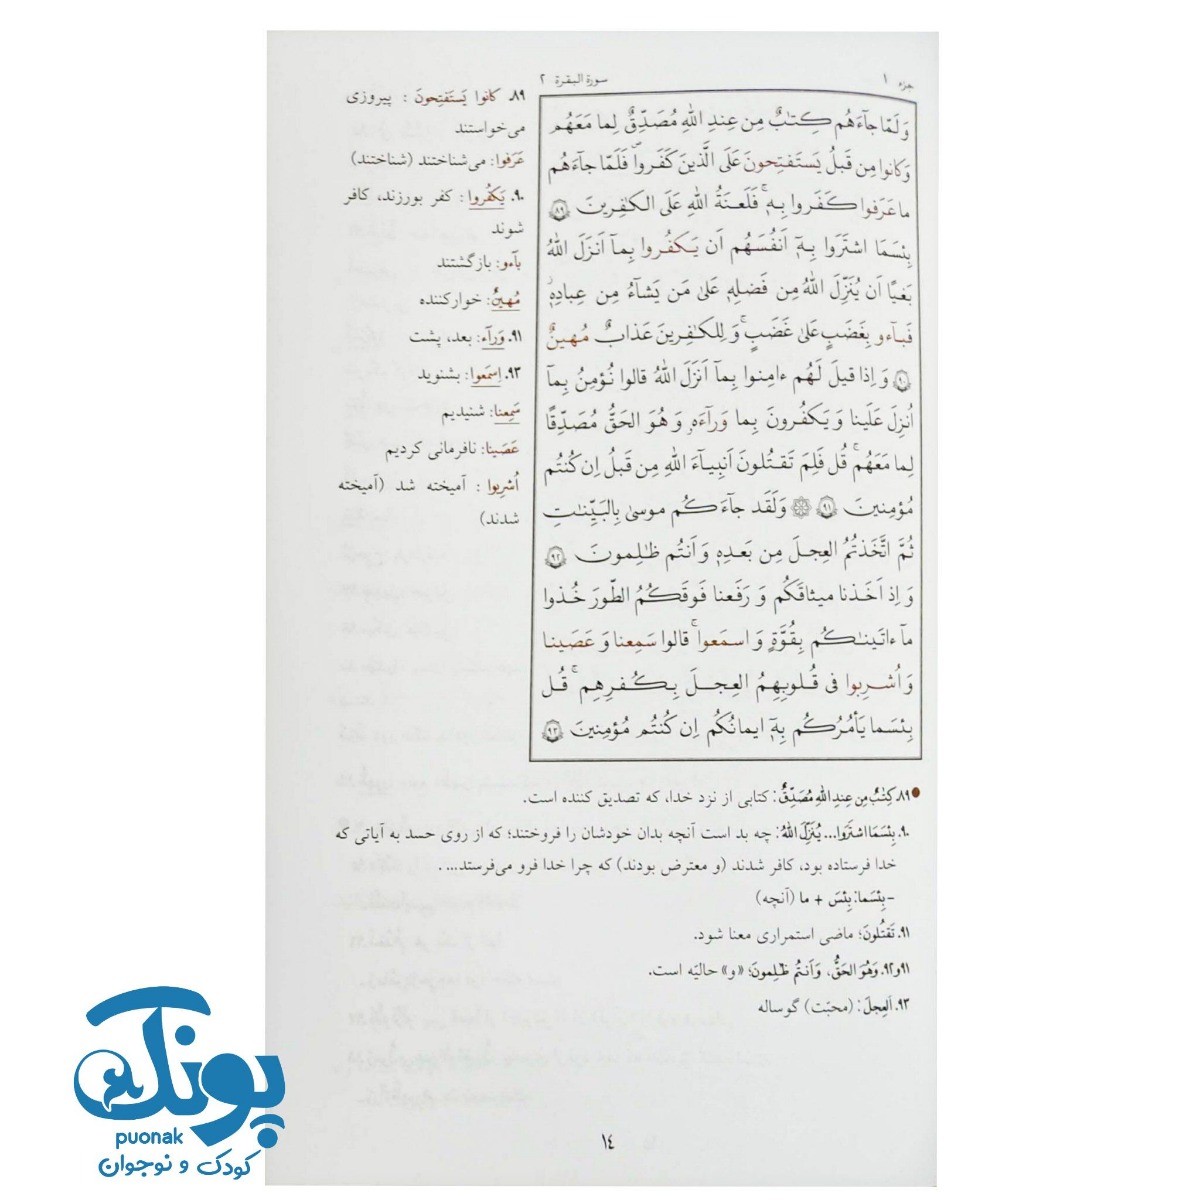 جزء ۱
سورة البقرة ۲
وَ لَمّا جآءَهُم كِتـٰبٌ مِن عِندِ اللّٰهِ مُصَدِّقٌ لِما مَعَهُم
وَ كانوا مِن قَبلُ يَستَفتِحونَ عَلَى الَّذينَ كَفَروا فَلَمّا جآءَهُم
ما عَرَفوا كَفَروا بِهٖۚ فَلَعنَةُ اللّٰهِ عَلَى الكٰفِرينَ ۸۹
بِئسَمَا اشتَرَوا بِهٖٓ اَنفُسَهُم اَن يَكفُروا بِمآ اَنزَلَ اللّٰهُ
بَغيًا اَن يُنَزِّلَ اللّٰهُ مِن فَضلِهٖ عَلىٰ مَن يَشآءُ مِن عِبادِهٖۖ
فَبآءو بِغَضَبٍ عَلىٰ غَضَبٍۚ وَ لِلكٰفِرينَ عَذابٌ مُهينٌ
۹۰ وَ اِذا قيلَ لَهُم ءامِنوا بِمآ اَنزَلَ اللّٰهُ قالوا نُؤمِنُ بِمآ
اُنزِلَ عَلَينا وَ يَكفُرونَ بِما وَرآءَهٗ وَ هُوَ الحَقُّ مُصَدِّقًا
لِما مَعَهُمۚ قُل فَلِمَ تَقتُلونَ اَنبِيآءَ اللّٰهِ مِن قَبلُ اِن كُنتُم
مُؤمِنينَ ۹۱ ۞ وَ لَقَد جآءَكُم موسىٰ بِالبَيِّنـٰتِ
ثُمَّ اتَّخَذتُمُ العِجلَ مِن بَعدِهٖ وَ اَنتُم ظـٰلِمونَ ۹۲
وَ اِذ اَخَذنا ميثاقَكُم وَ رَفَعنا فَوقَكُمُ الطّورَ خُذوا
مآ ءاتَينـٰكُم بِقُوَّةٍ وَ اسمَعواۚ قالوا سَمِعنا وَ عَصَينا
وَ اُشرِبوا فى قُلوبِهِمُ العِجلَ بِكُفرِهِمۚ قُل
بِئسَما يَأمُرُكُم بِهٖٓ ايمانُكُم اِن كُنتُم مُؤمِنينَ ۹۳
۸۹. كانوا يَستَفتِحونَ : پیروزی
می‌خواستند
عَرَفوا: می‌شناختند (شناختند)
۹۰. يَكفُروا : کفر بورزند، کافر
شوند
بآءو: بازگشتند
مُهينٌ: خوارکننده
۹۱. وَرآءَ: بعد، پشت
۹۳. اِسمَعوا: بشنوید
سَمِعنا: شنیدیم
عَصَينا: نافرمانی کردیم
اُشرِبوا : آمیخته شد (آمیخته
شدند)
۸۹. كِتٰبٌ مِن عِندِ اللّٰهِ مُصَدِّقٌ: کتابی از نزد خدا، که تصدیق کننده است.
۹۰. بِئسَمَا اشتَرَوا... يُنَزِّلَ اللّٰهُ: چه بد است آنچه بدان خودشان را فروختند؛ که از روی حسد به آیاتی که
خدا فرستاده بود، کافر شدند (و معترض بودند) که چرا خدا فرو می‌فرستد... .
- بِئسَما: بِئسَ + ما (آنچه)
۹۱. تَقتُلونَ؛ ماضی استمراری معنا شود.
۹۱و۹۲. وَ هُوَ الحَقُّ، وَ اَنتُم ظـٰلِمونَ؛ «و» حالیّه است.
۹۳. اَلعِجلَ: (محبّت) گوساله
۱٤
پونک
puonak
کودک و نوجوان